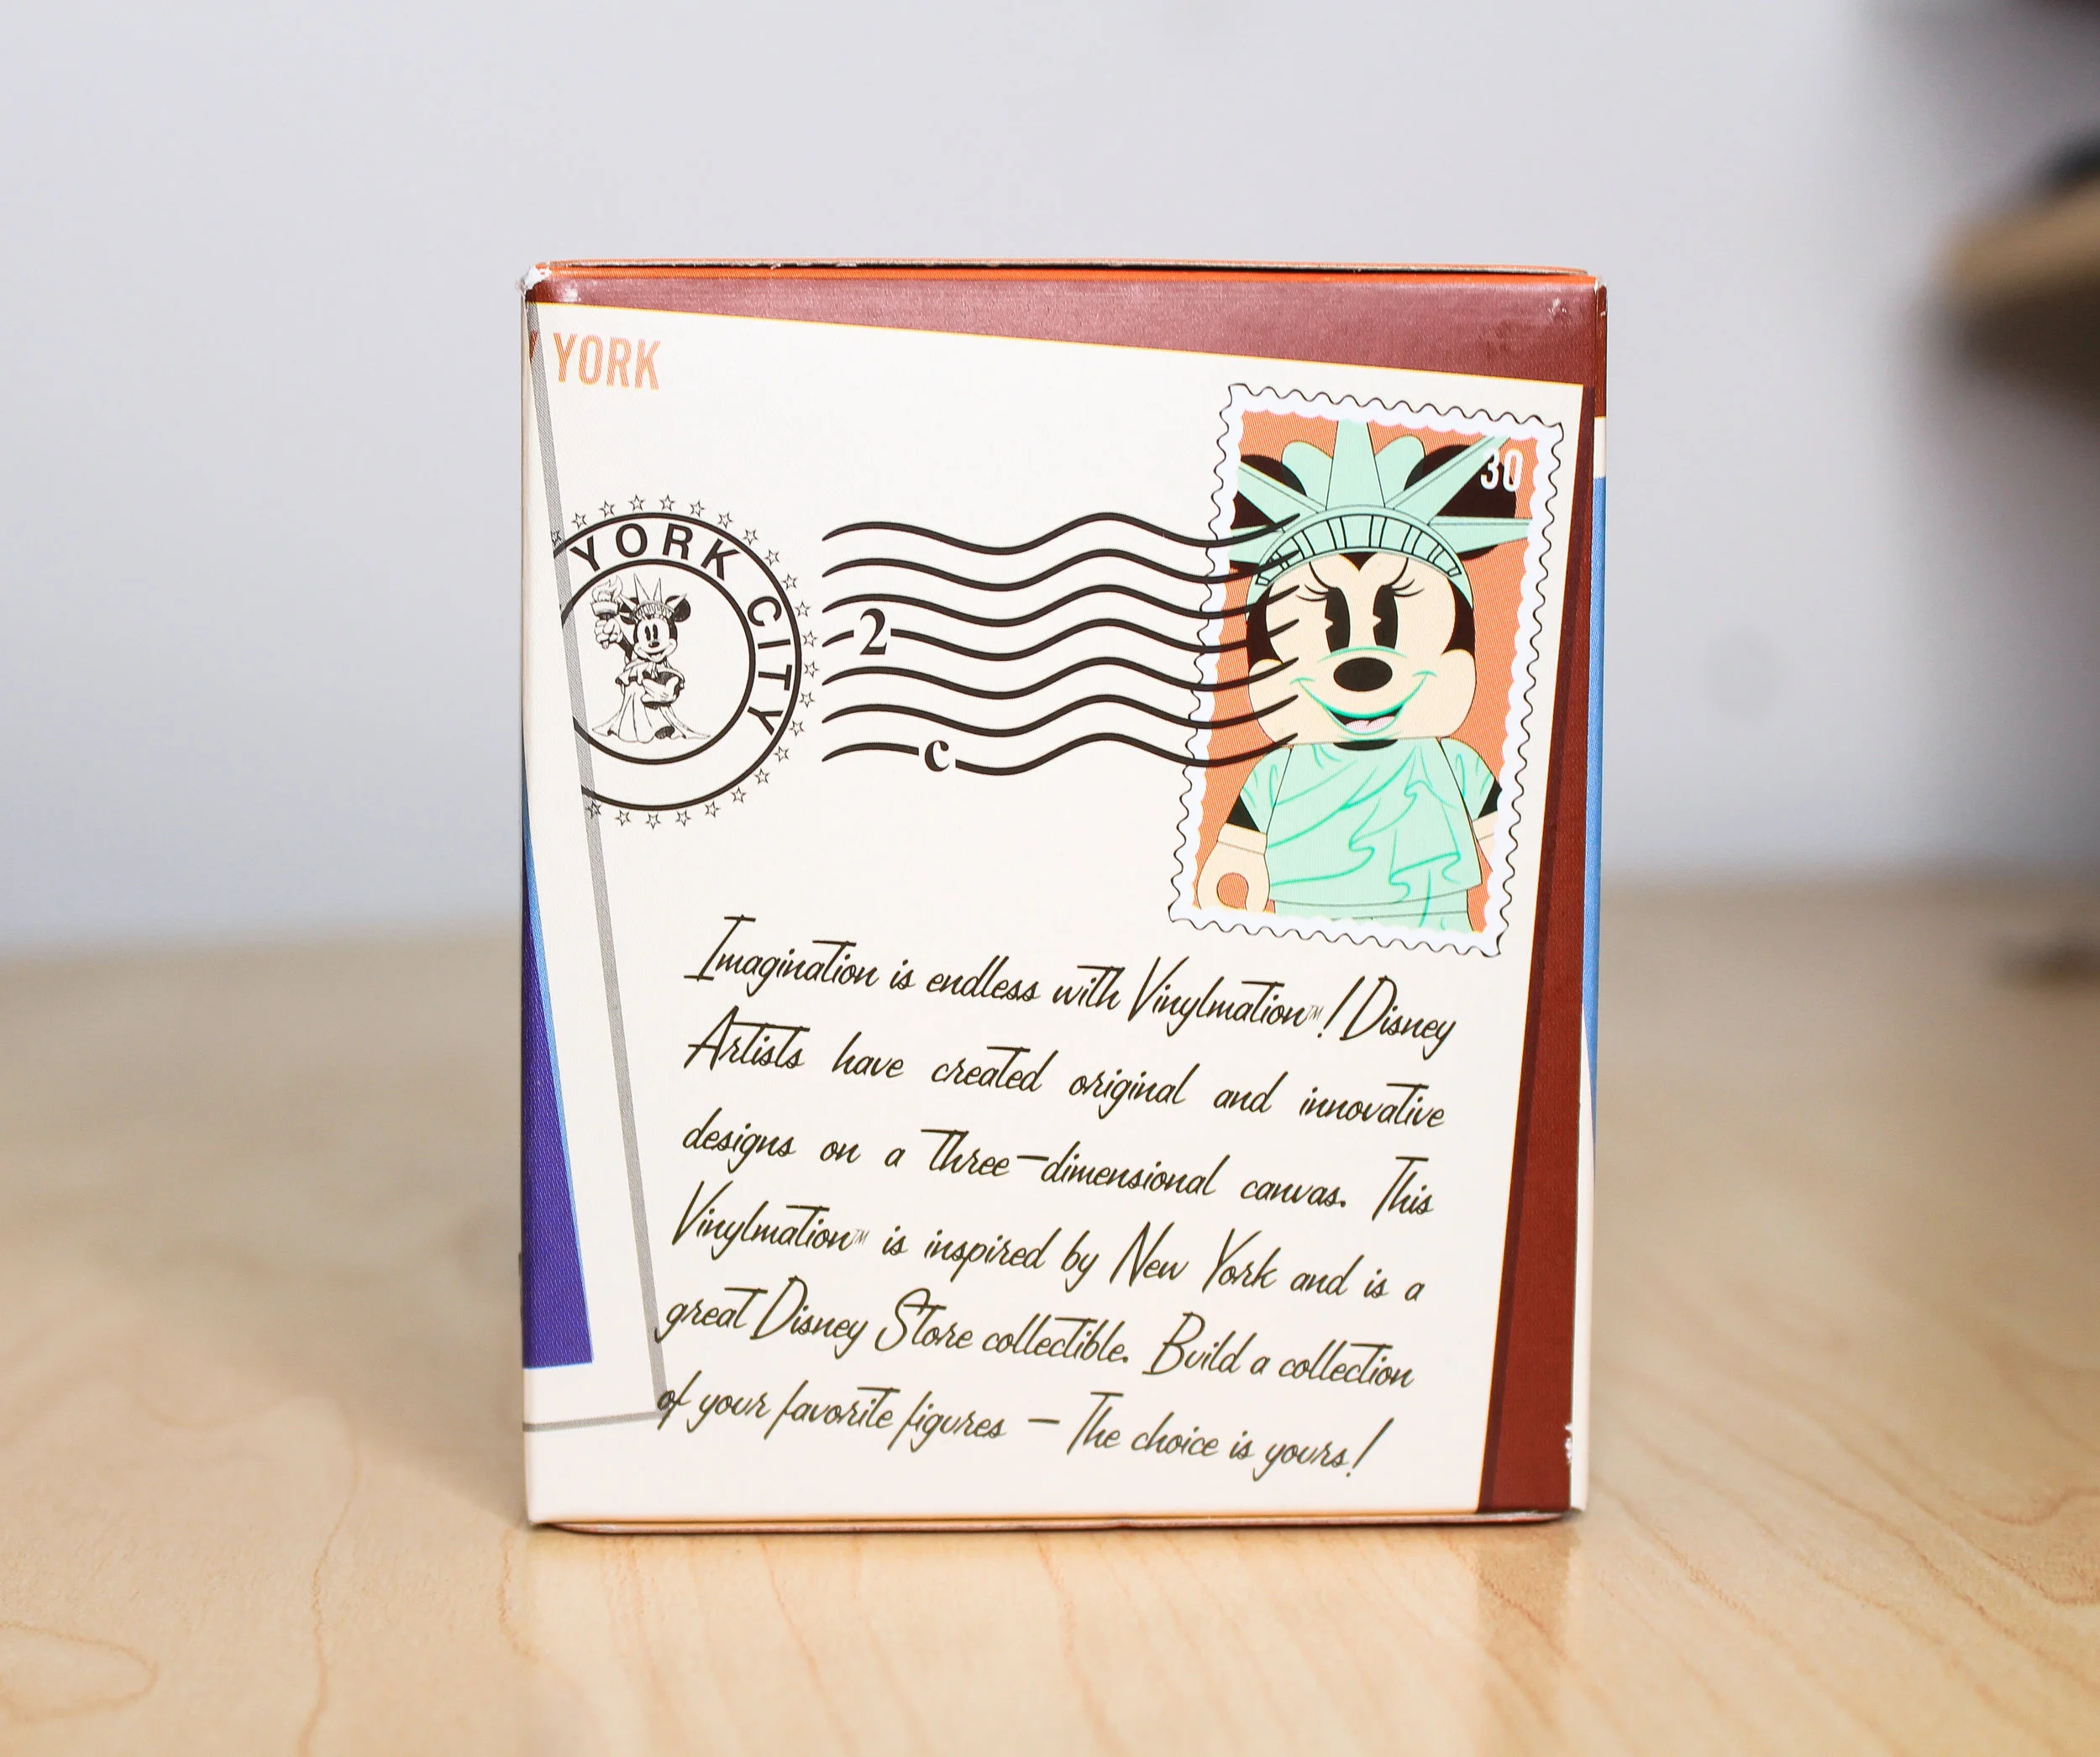 YORK
30
YORK CITY
2
c
Imagination is endless with Vinylmation™! Disney
Artists have created original and innovative
designs on a three-dimensional canvas. This
Vinylmation™ is inspired by New York and is a
great Disney Store collectible. Build a collection
of your favorite figures – The choice is yours!